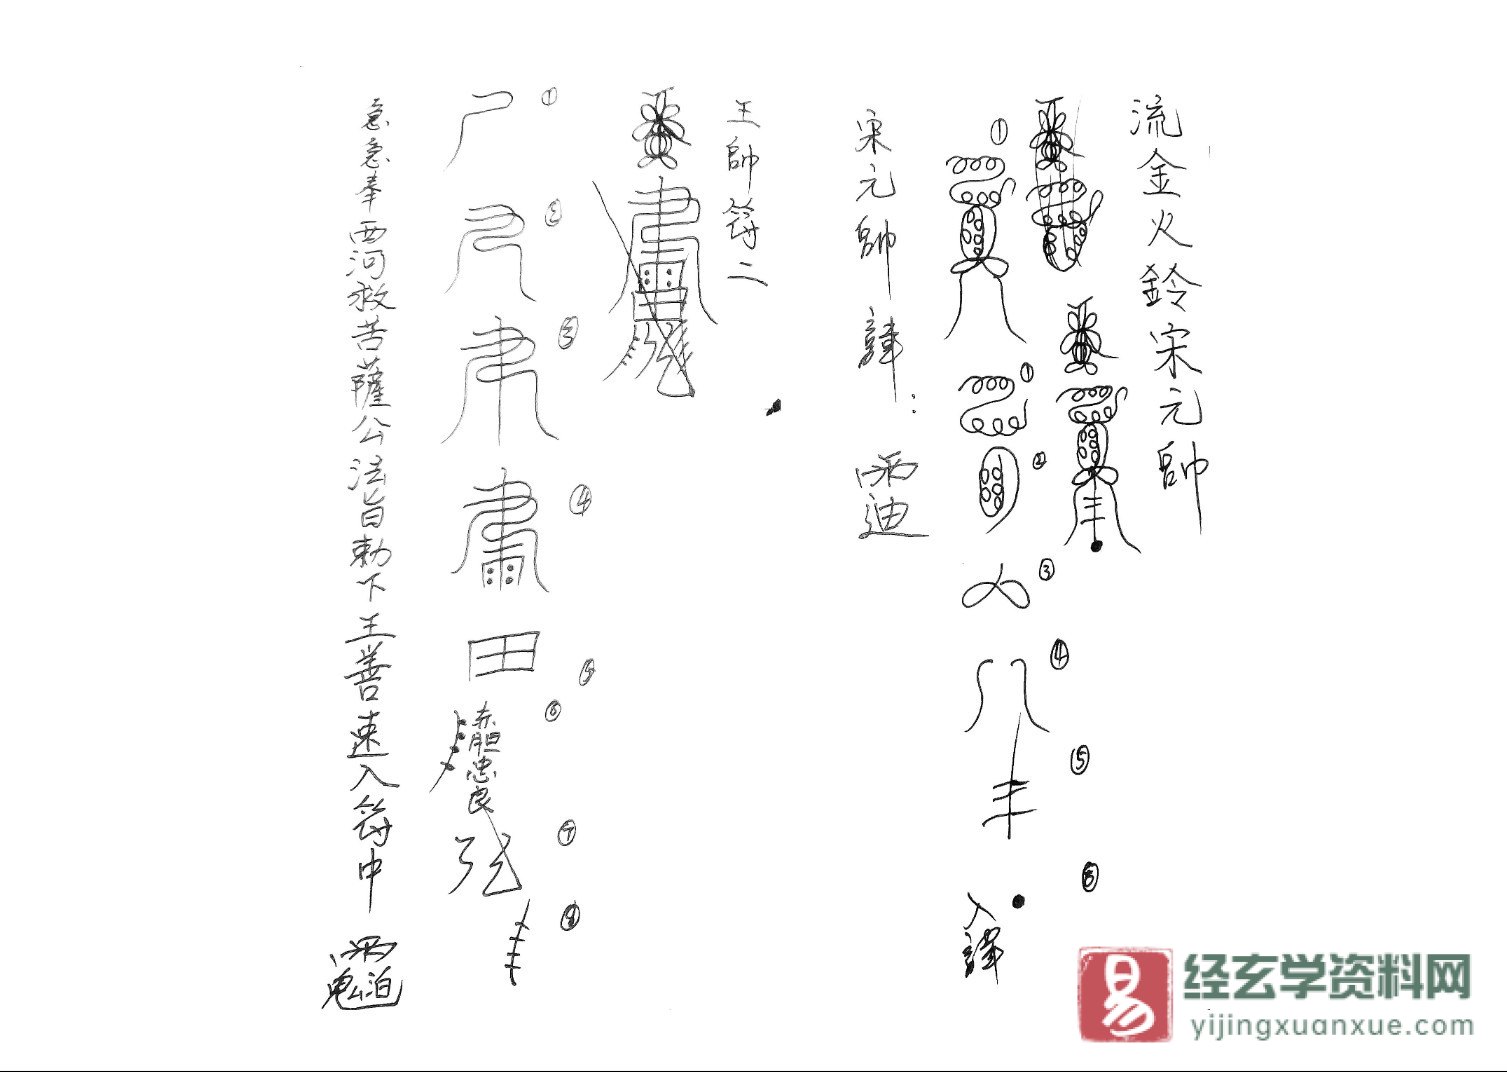 流金火鈴宋元帥
①
①
②
③
④
⑤
⑥
入諱
宋元帥諱：
王帥符二
①
②
③
④
⑤
⑥
赤胆忠良
⑦
⑧
急急奉西河救苦薩公法旨勅下王善速入符中
经玄学资料网
yijingxuanxue.com
易